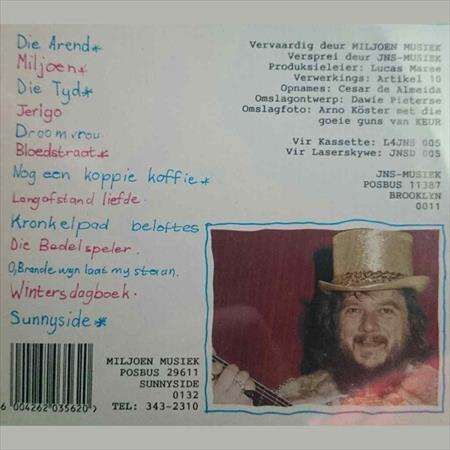 Die Arend*
Miljoen*
Die Tyd*
Jerigo
Droomvrou
Bloedstraat*
Nog een koppie koffie*
Langafstand liefde.
Kronkelpad beloftes
Die Bedelspeler.
O, Brandewyn laat my staan.
Wintersdagboek.
Sunnyside*
Vervaardig deur MILJOEN MUSIEK
Versprei deur JNS-MUSIEK
Produksieleier: Lucas Maree
Verwerkings: Artikel 10
Opnames: Cesar de Almeida
Omslagontwerp: Dawie Pieterse
Omslagfoto: Arno Köster met die
goeie guns van KEUR
Vir Kassette: L4JNS 005
Vir Laserskywe: JNSD 005
JNS-MUSIEK
POSBUS 11387
BROOKLYN
0011
MILJOEN MUSIEK
POSBUS 29611
SUNNYSIDE
0132
TEL: 343-2310
6 004262 035620